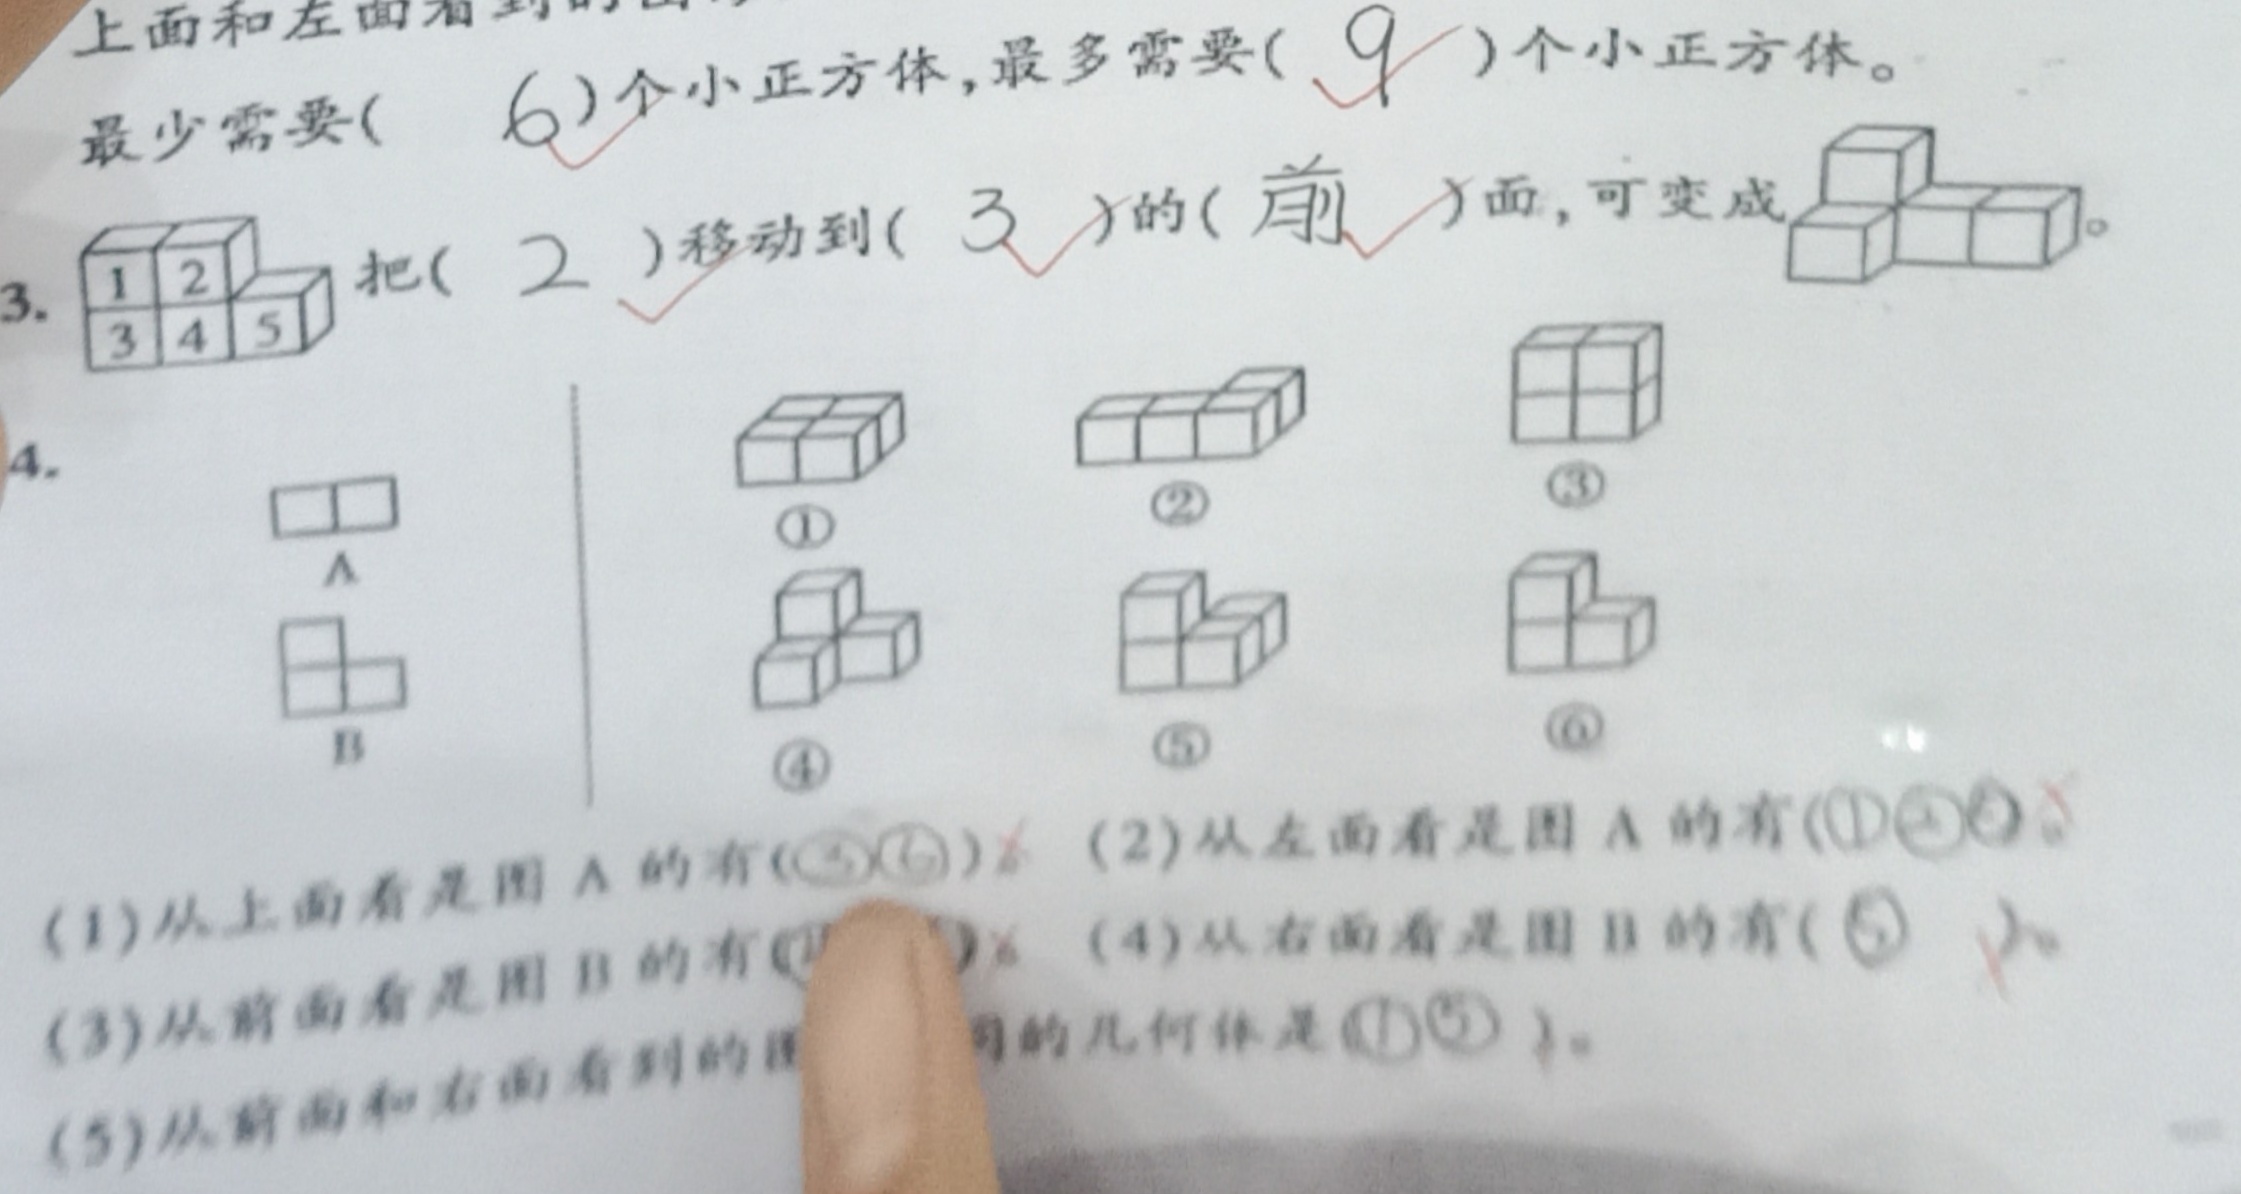 上面和左面看到的
最少需要( 6 )个小正方体,最多需要( 9 )个小正方体。
3. 1 2 3 4 5 把( 2 )移动到( 3 )的( 前 )面,可变成 。
4.
① ② ③
A
④ ⑤ ⑥
B
(1)从上面看是图 A 的有(③⑥)。 (2)从左面看是图 A 的有(① )。
(3)从前面看是图 B 的有( )。 (4)从右面看是图 B 的有( ⑤ )。
(5)从前面和右面看到的图 同的几何体是(①⑤ )。